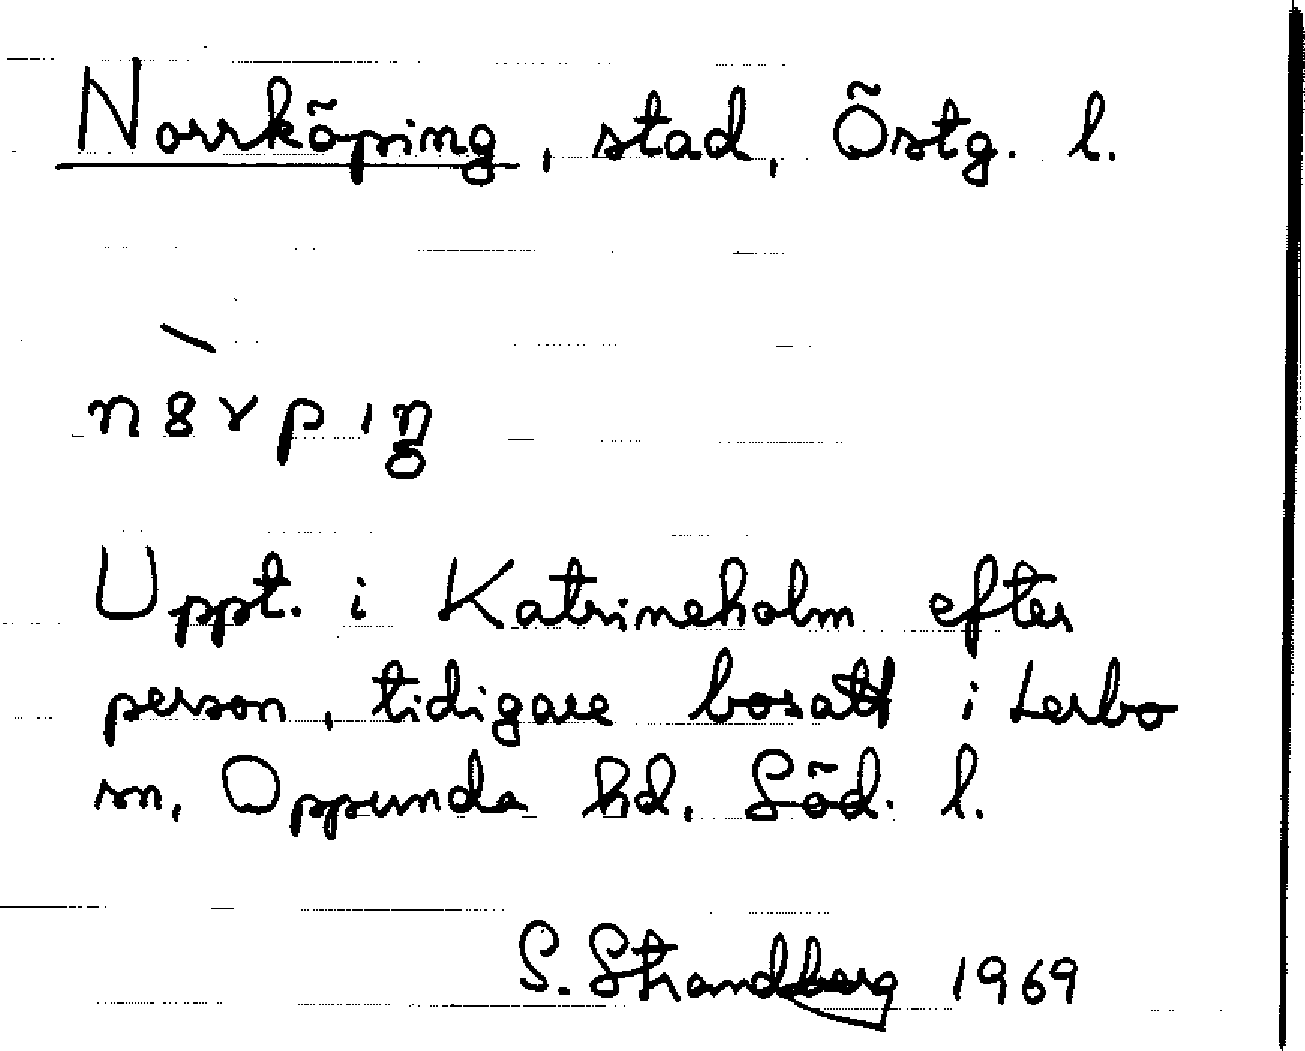 Norrköping, stad, Östg. l.
n8̀rpıŋ
Uppt. i Katrineholm efter
person, tidigare bosatt i Lerbo
sn, Oppunda hd. Söd. l.
S. Strandberg 1969